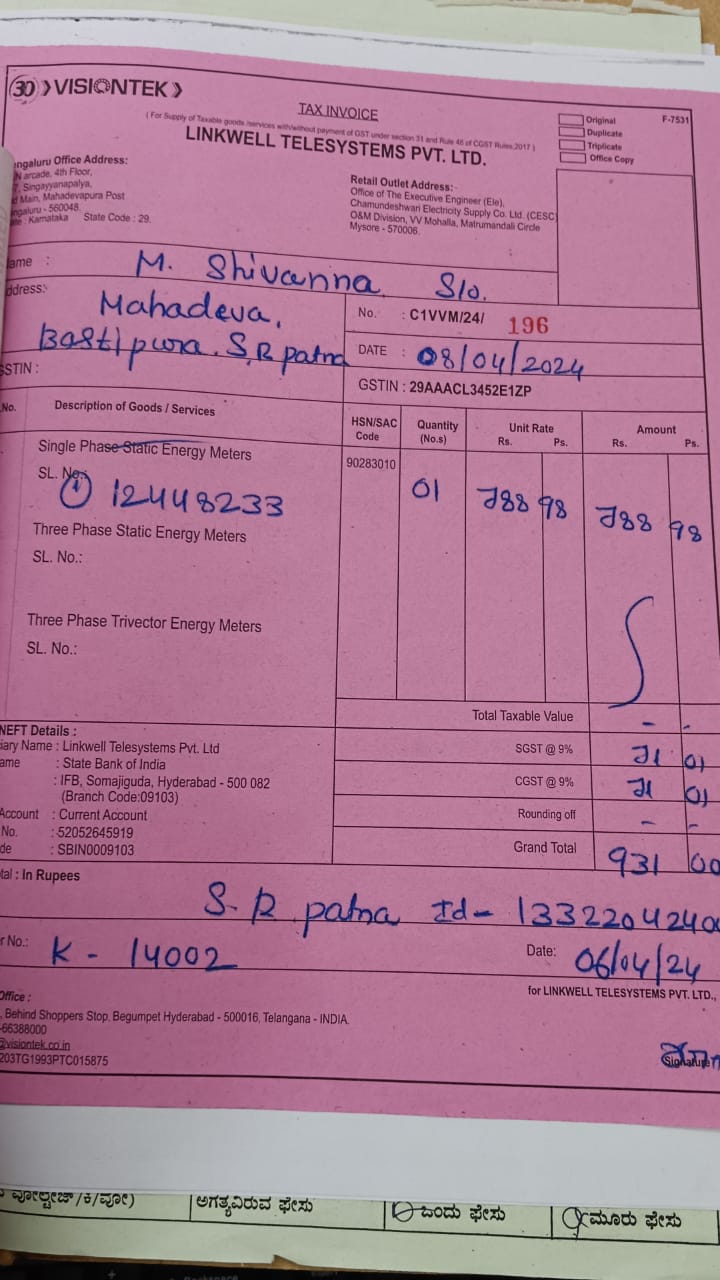 30 VISIONTEK
TAX INVOICE
( For Supply of Taxable goods /services with/without payment of GST under section 31 and Rule 46 of CGST Rules,2017 )
LINKWELL TELESYSTEMS PVT. LTD.
Original
F-7531
Duplicate
Triplicate
Office Copy
ngaluru Office Address:
N arcade, 4th Floor,
7, Singayyanapalya,
d Main, Mahadevapura Post
ngaluru - 560048.
: Karnataka State Code : 29.
Retail Outlet Address:-
Office of The Executive Engineer (Ele),
Chamundeshwari Electricity Supply Co. Ltd. (CESC)
O&M Division, VV Mohalla, Matrumandali Circle
Mysore - 570006.
ame : M. Shivanna S/o.
ddress:- Mahadeva,
Bastipura. S.R patna
No. : C1VVM/24/ 196
DATE : 08/04/2024
STIN :
GSTIN : 29AAACL3452E1ZP
No. Description of Goods / Services HSN/SAC Code Quantity (No.s) Unit Rate Rs. Ps. Amount Rs. Ps.
Single Phase Static Energy Meters 90283010
SL. No.: 1 12448233 01 788 98 788 98
Three Phase Static Energy Meters
SL. No.:
Three Phase Trivector Energy Meters
SL. No.:
Total Taxable Value - -
NEFT Details :
iary Name : Linkwell Telesystems Pvt. Ltd
ame : State Bank of India
: IFB, Somajiguda, Hyderabad - 500 082
(Branch Code:09103)
Account : Current Account
No. : 52052645919
de : SBIN0009103
SGST @ 9% 71 01
CGST @ 9% 71 01
Rounding off - -
Grand Total 931 00
tal : In Rupees
S. R patna Id- 1332204240
r No.: K - 14002 Date: 06/04/24
for LINKWELL TELESYSTEMS PVT. LTD.,
Office :
, Behind Shoppers Stop. Begumpet Hyderabad - 500016, Telangana - INDIA.
-66388000
@visiontek.co.in
203TG1993PTC015875
Signature
ವೋಲ್ಟೇಜ್/ಕಿ/ವೋ) ಅಗತ್ಯವಿರುವ ಫೇಸು ಒಂದು ಫೇಸು ಮೂರು ಫೇಸು